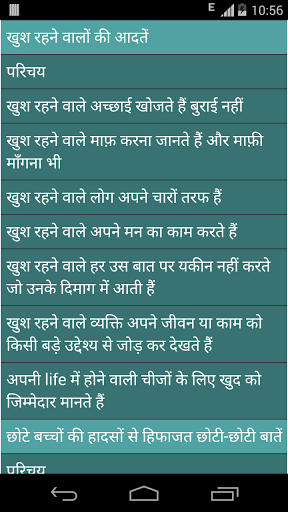 E 10:56
खुश रहने वालों की आदतें
परिचय
खुश रहने वाले अच्छाई खोजते हैं बुराई नहीं
खुश रहने वाले माफ़ करना जानते हैं और माफ़ी
माँगना भी
खुश रहने वाले लोग अपने चारों तरफ हैं
खुश रहने वाले अपने मन का काम करते हैं
खुश रहने वाले हर उस बात पर यकीन नहीं करते
जो उनके दिमाग में आती हैं
खुश रहने वाले व्यक्ति अपने जीवन या काम को
किसी बड़े उद्देश्य से जोड़ कर देखते हैं
अपनी life में होने वाली चीजों के लिए खुद को
जिम्मेदार मानते हैं
छोटे बच्चों की हादसों से हिफाजत छोटी-छोटी बातें
परिचय